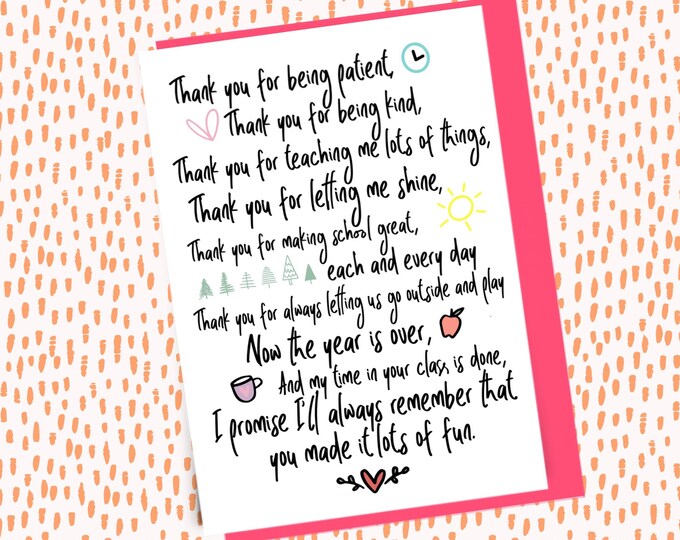 Thank you for being patient,
Thank you for being kind,
Thank you for teaching me lots of things,
Thank you for letting me shine,
Thank you for making school great,
each and every day
Thank you for always letting us go outside and play
Now the year is over,
And my time in your class, is done,
I promise I'll always remember that
you made it lots of fun.